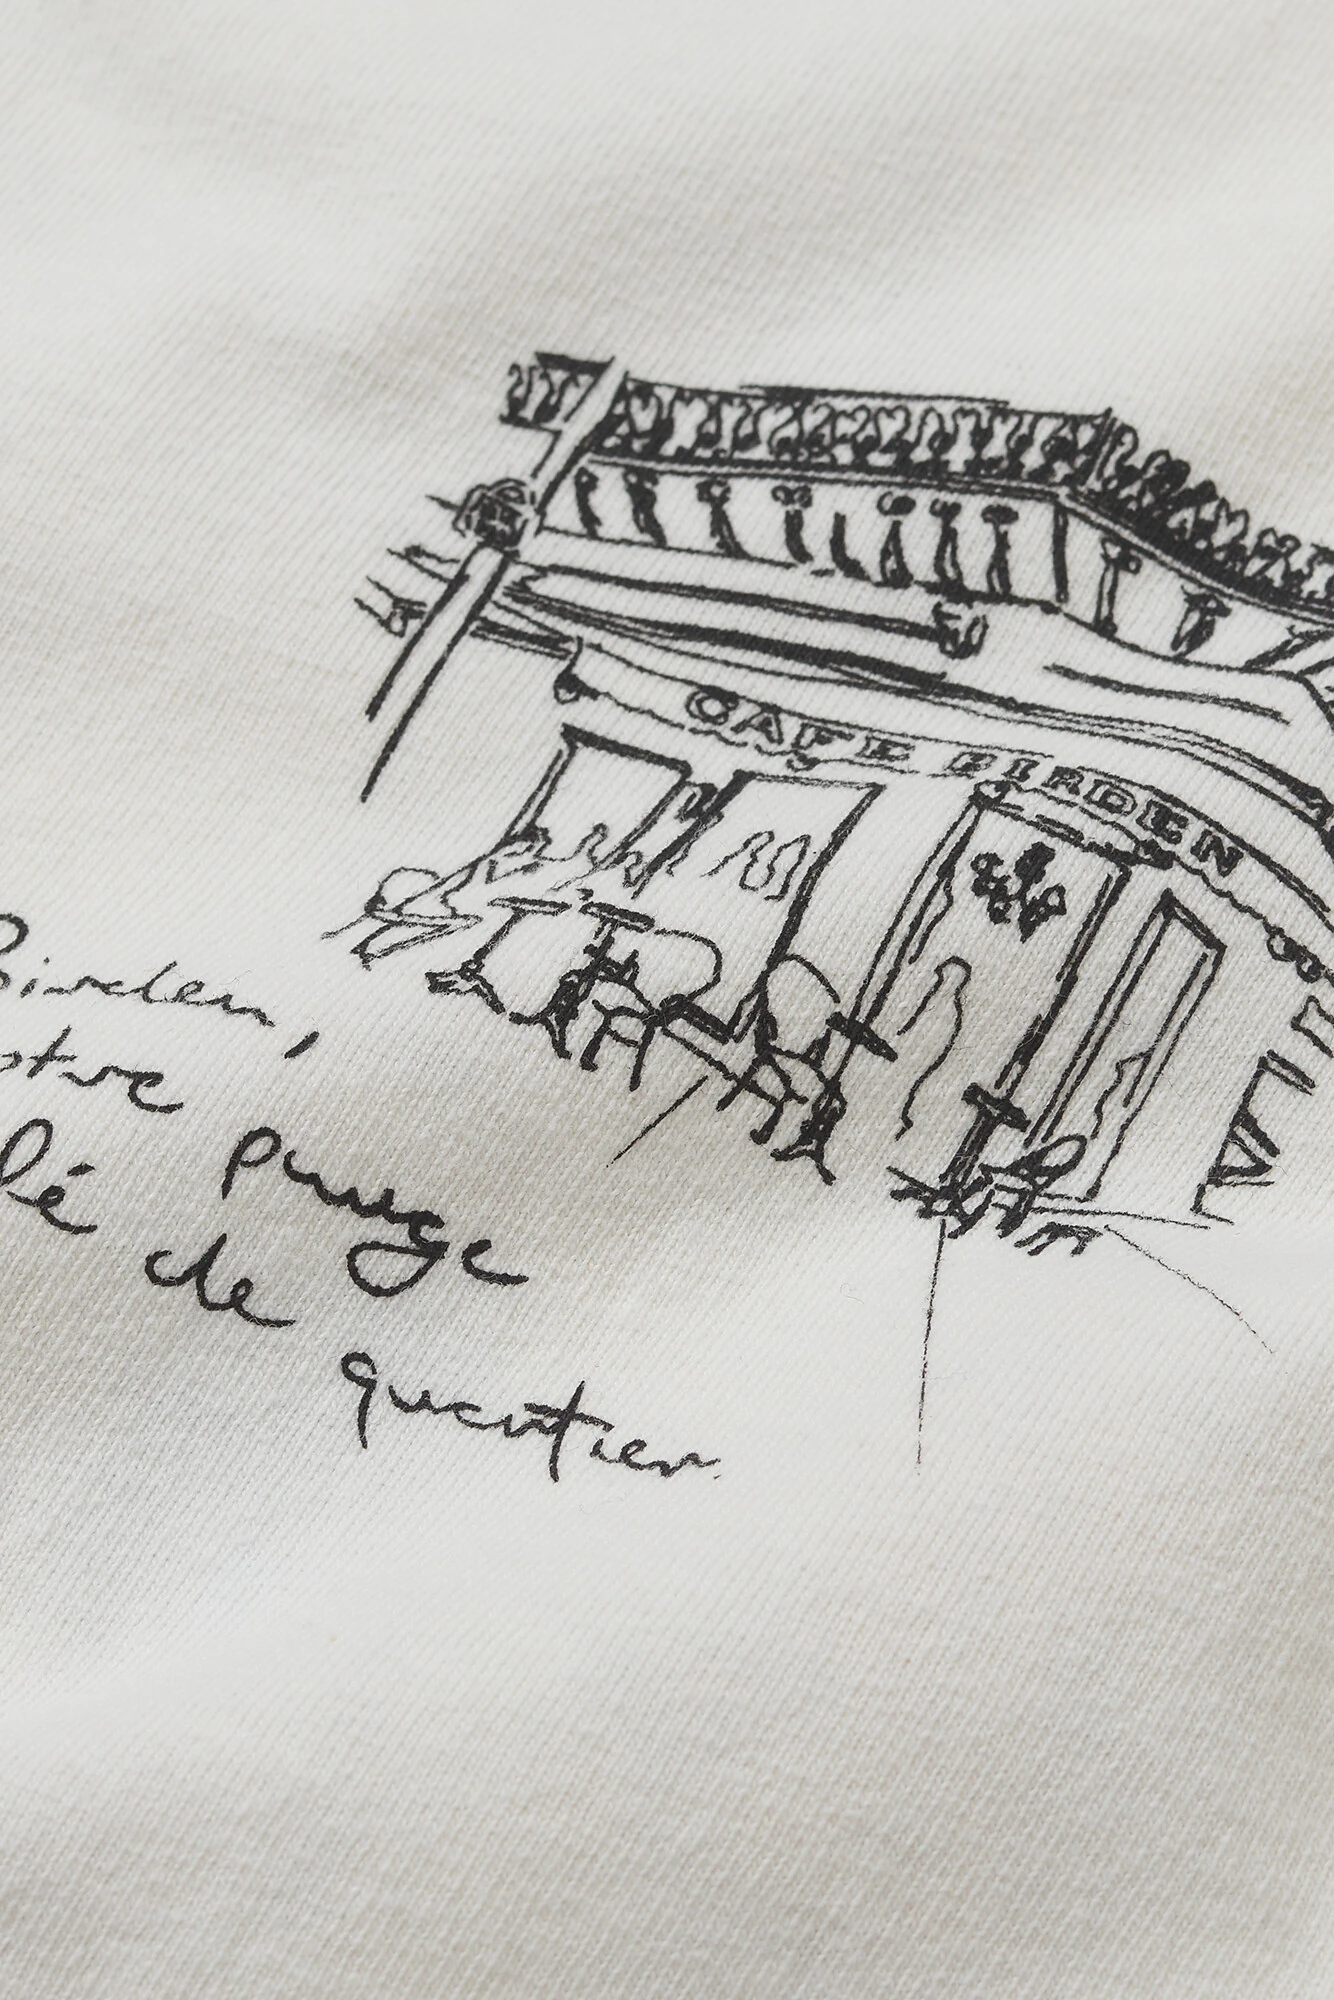 CAFE BIRDEN
Birden,
otre pause
lé de
quartier.